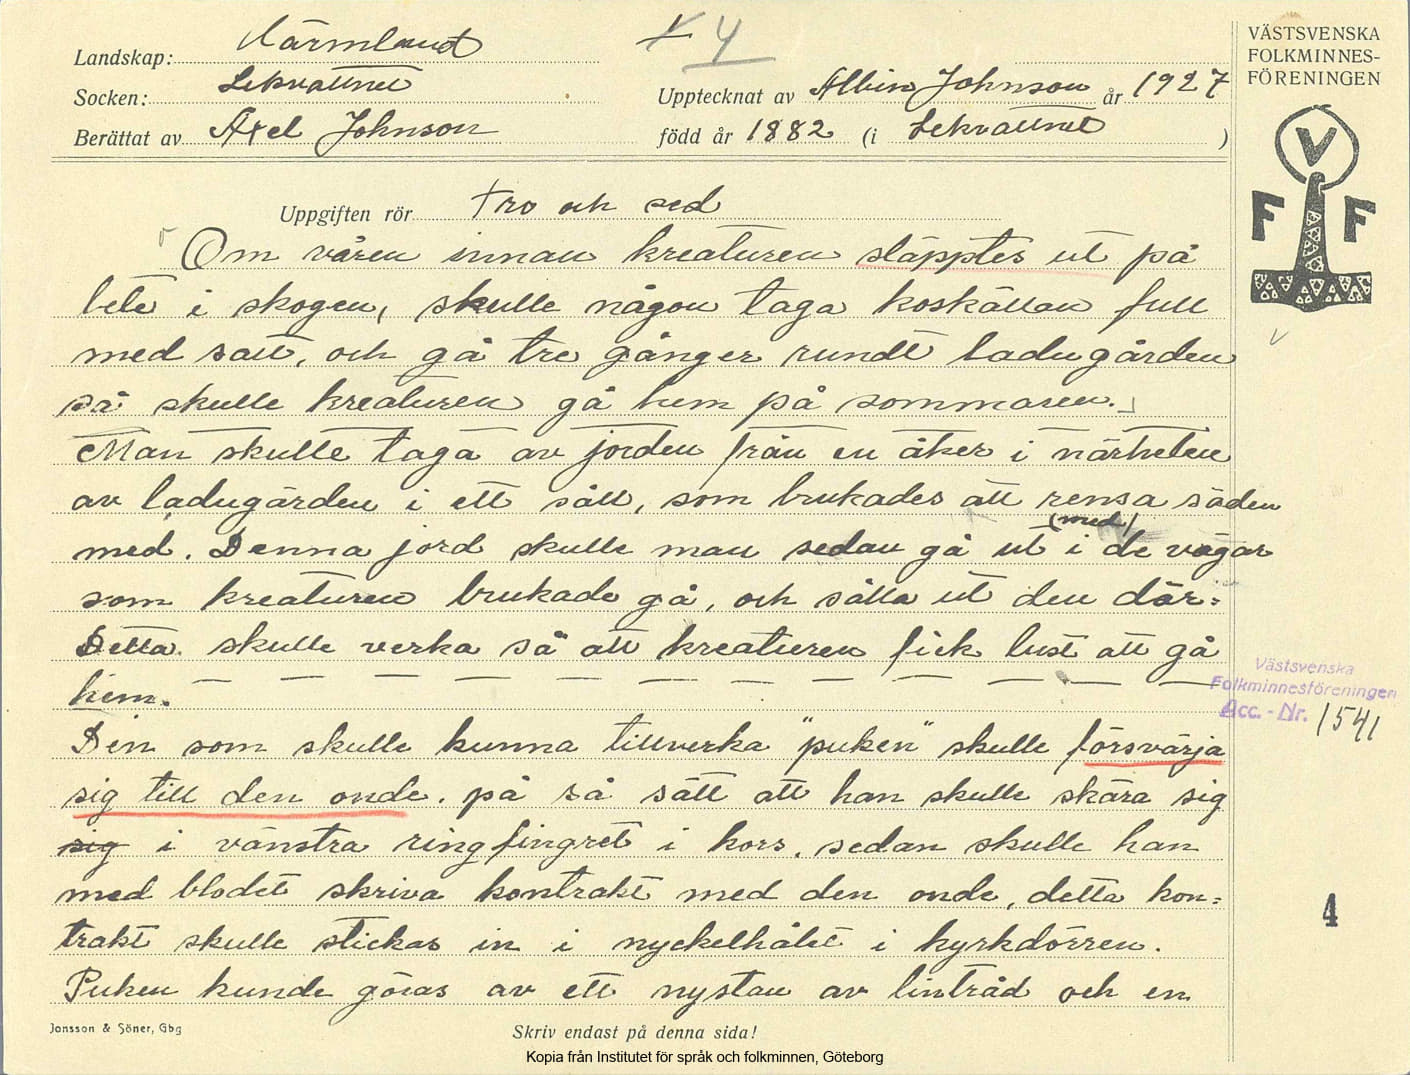 Landskap: Värmland
Socken: Lekvattnet
Berättat av Axel Johnson
4
Upptecknat av Albin Johnson år 1927
född år 1882 (i Lekvattnet )
VÄSTSVENSKA
FOLKMINNES-
FÖRENINGEN
V
F F
Uppgiften rör Tro och sed
Om våren innan kreaturen släpptes ut på
bete i skogen, skulle någon taga koskällan full
med salt, och gå tre gånger rundt ladugården
så skulle kreaturen gå hem på sommaren.
Man skulle taga av jorden från en åker i närheten
av ladugården i ett såll, som brukades att rensa säden
med. Denna jord skulle man sedan gå ut (med) i de vägar
som kreaturen brukade gå, och sålla ut den där.
Detta skulle verka så att kreaturen fick lust att gå
hem.
Den som skulle kunna tillverka "puken" skulle försvärja
sig till den onde. på så sätt att han skulle skära sig
sig i vänstra ringfingret i kors. sedan skulle han
med blodet skriva kontrakt med den onde, detta kon=
trakt skulle stickas in i nyckelhålet i kyrkdörren.
Puken kunde göras av ett nystan av lintråd och en
Västsvenska
Folkminnesföreningen
Acc.-Nr. 1541
4
Jonsson & Söner, Gbg
Skriv endast på denna sida!
Kopia från Institutet för språk och folkminnen, Göteborg